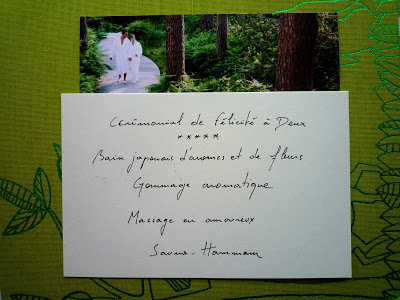 Cérémonial de félicité à Deux
*****
Bain japonais d'aromes et de fleurs
Gommage aromatique
Massage en amoureux
Sauna - Hammam